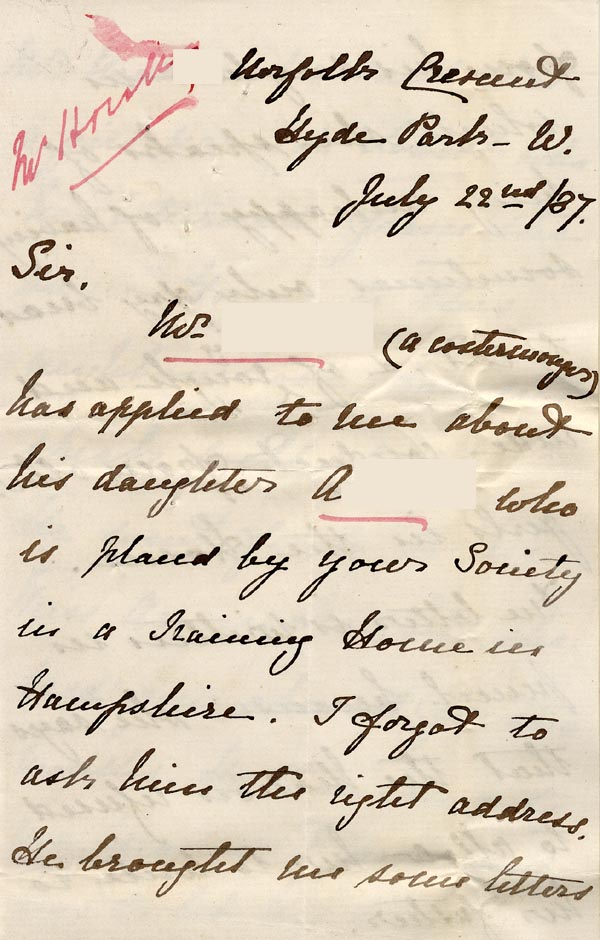 Norfolk Crescent
Hyde Park - W.
July 22nd /87.
Sir.
Mr (a costermonger)
has applied to me about
his daughter A who
is placed by your Society
in a Training Home in
Hampshire. I forgot to
ask him the right address.
He brought me some letters